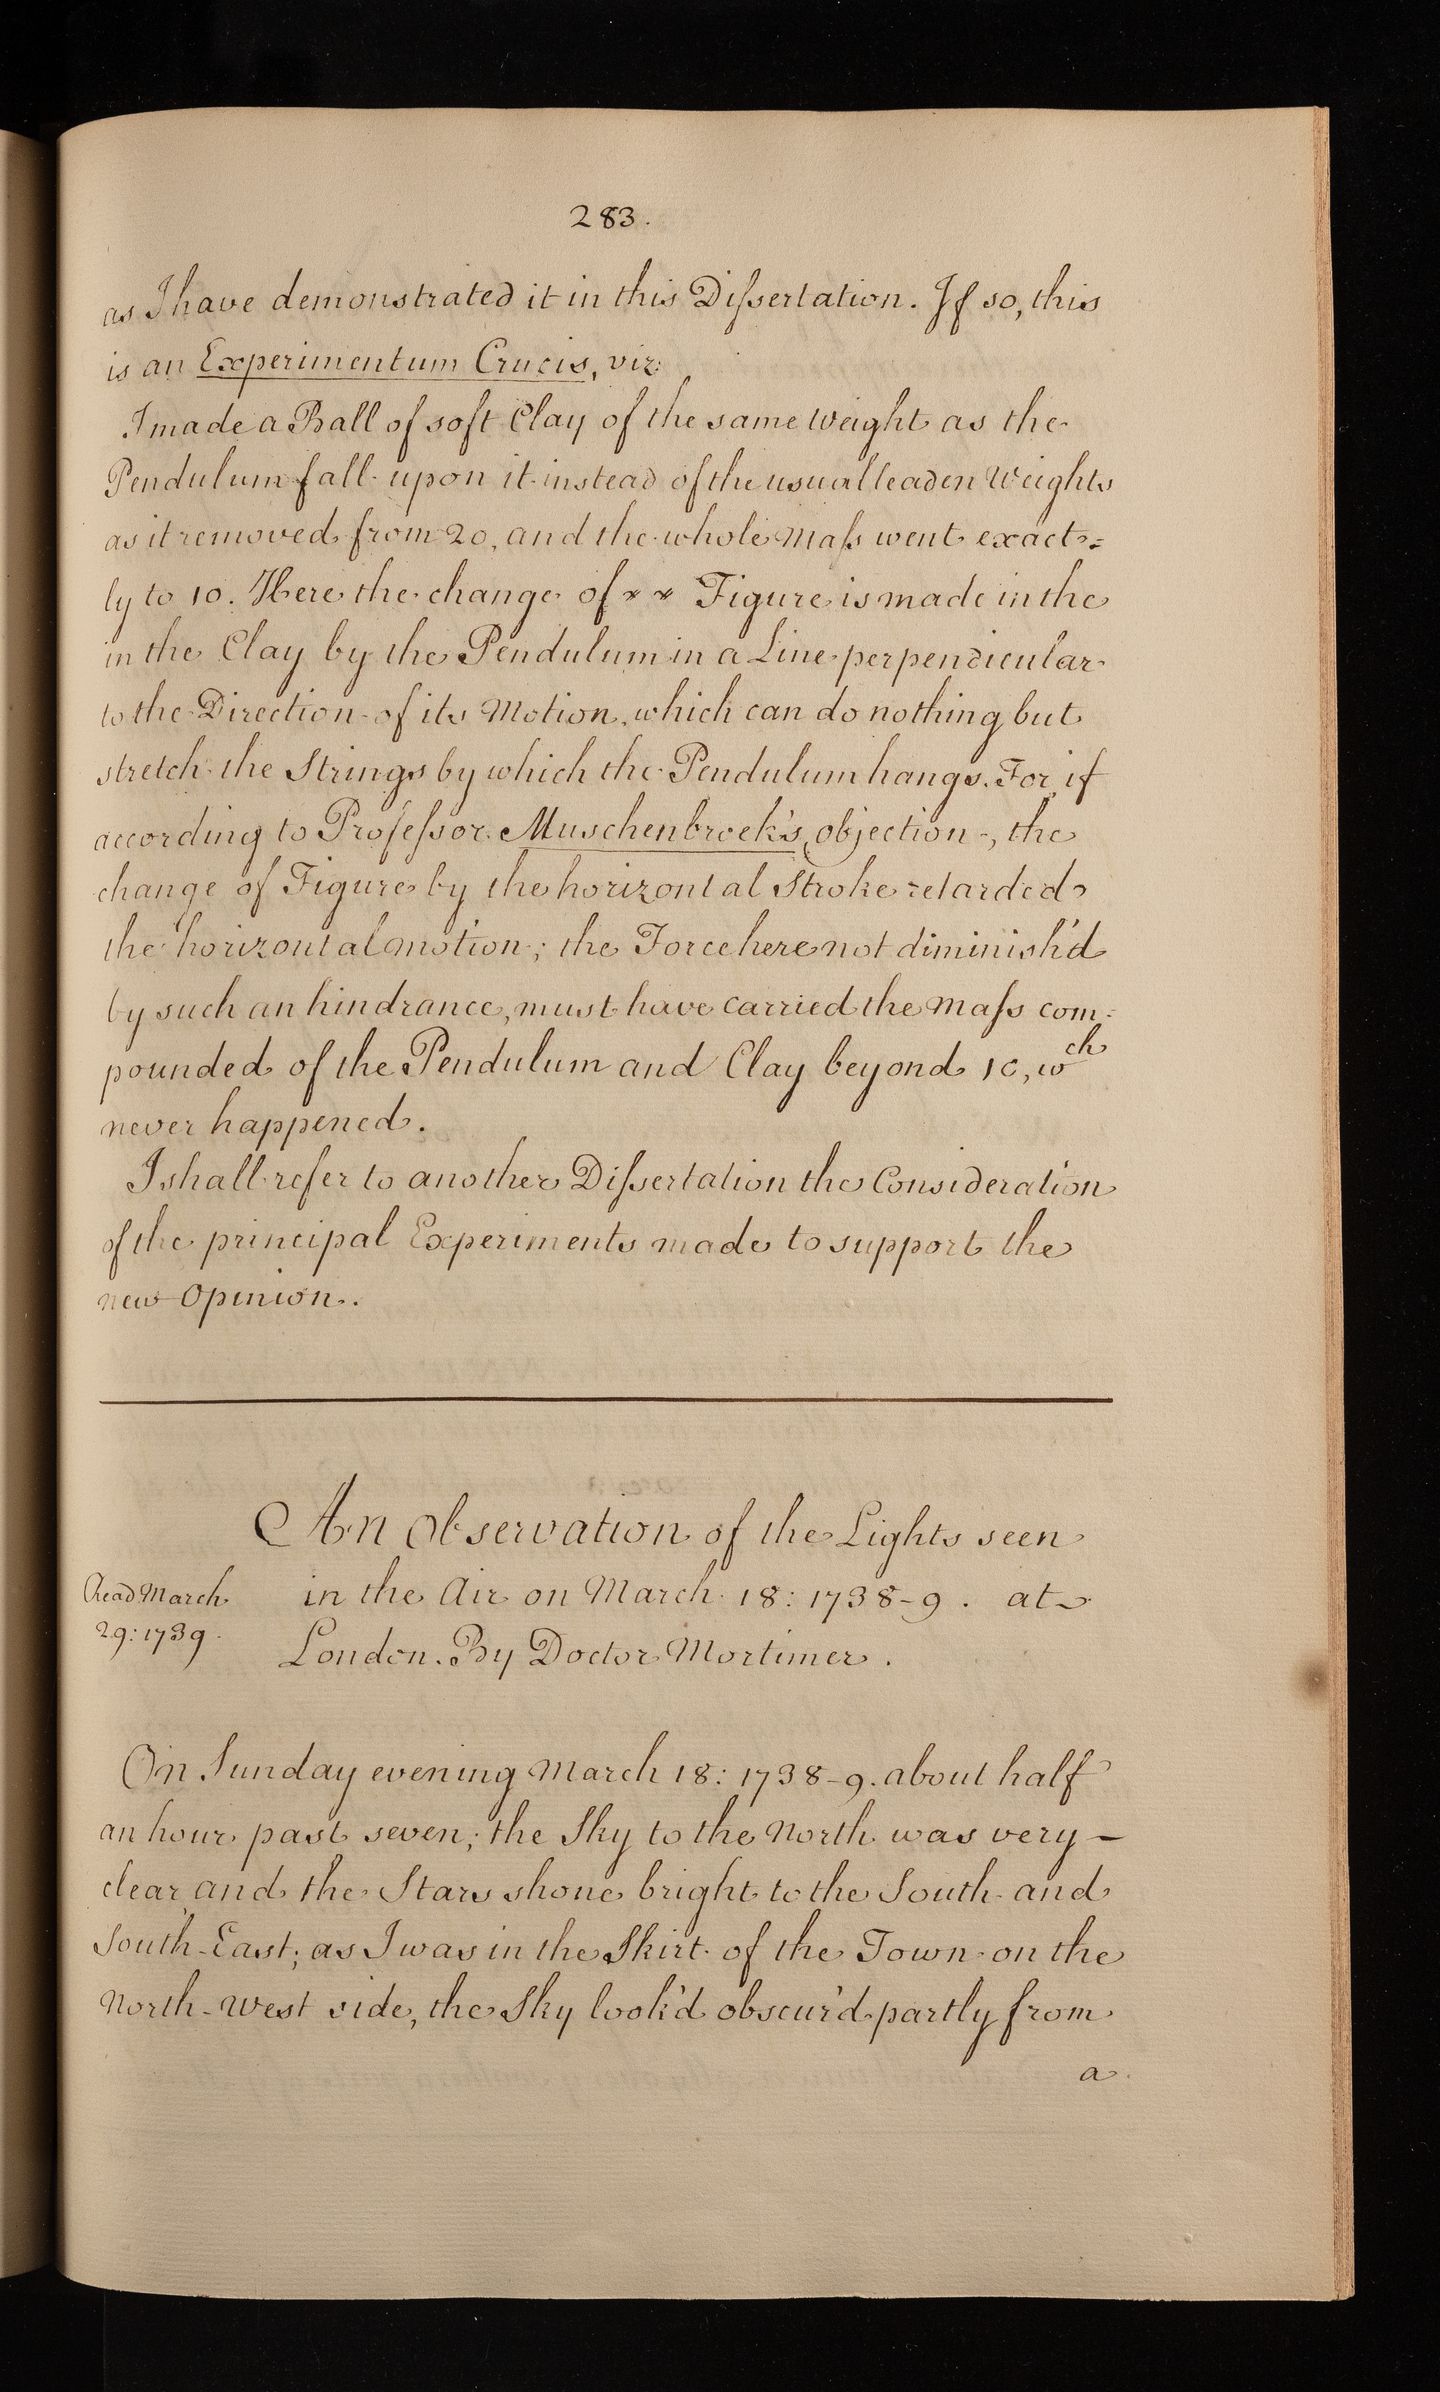 283.
as I have demonstrated it in this Dissertation. If so, this
is an Experimentum Crucis, viz:
I made a Ball of soft Clay of the same Weight as the
Pendulum fall upon it instead of the usual leaden Weights
as it removed from 20, and the whole Mass went exact=
ly to 10. Here the change of × × Figure is made in the
in the Clay by the Pendulum in a Line perpendicular
to the Direction of its Motion, which can do nothing but
stretch the Strings by which the Pendulum hangs. For if
according to Professor Muschenbroek's objection, the
change of Figure by the horizontal Stroke retarded
the horizontal motion; the Force here not diminish'd
by such an hindrance, must have carried the Mass com=
pounded of the Pendulum and Clay beyond 10, wch
never happened.
I shall refer to another Dissertation the Consideration
of the principal Experiments made to support the
new Opinion.
An Observation of the Lights seen
in the Air on March 18: 1738-9. at
London. By Doctor Mortimer.
Read March
29: 1739.
On Sunday evening March 18: 1738-9. about half
an hour past seven; the Sky to the North was very —
clear and the Stars shone bright to the South and
South-East; as I was in the Skirt of the Town on the
North-West side, the Sky look'd obscur'd partly from
a